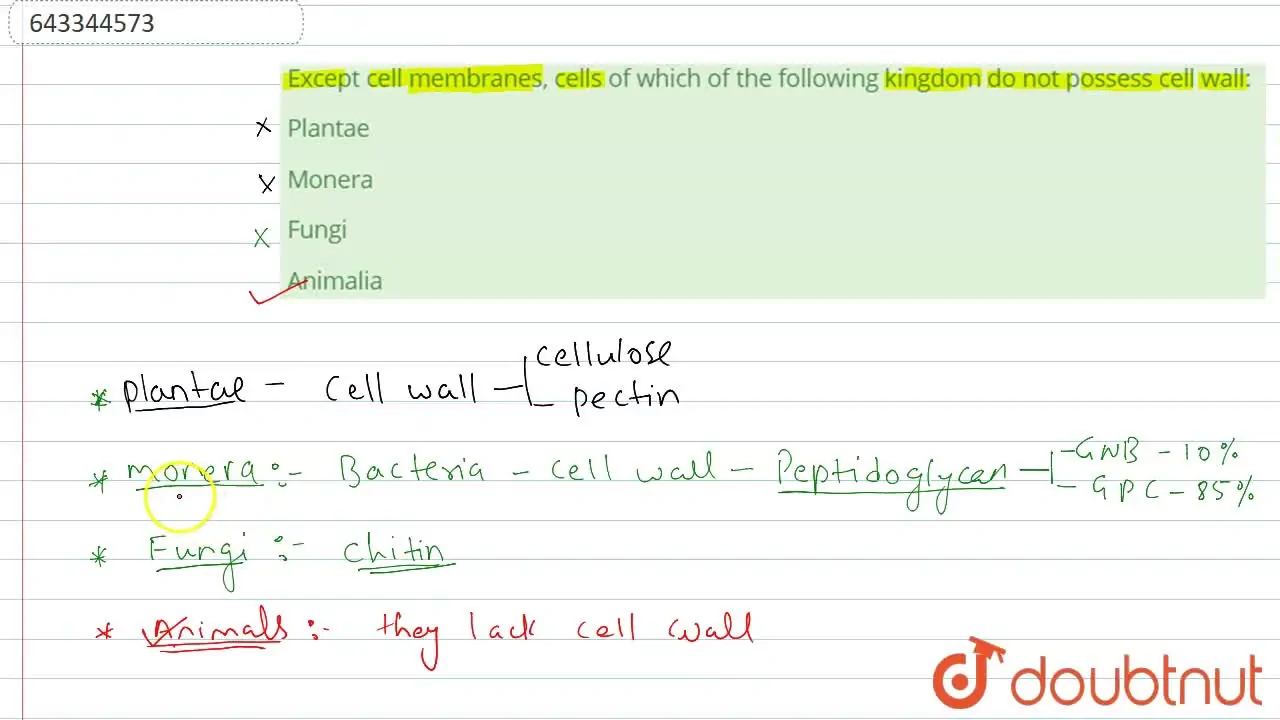 643344573
Except cell membranes, cells of which of the following kingdom do not possess cell wall:
x Plantae
x Monera
x Fungi
✓ Animalia
* Plantae - cell wall - cellulose
pectin
* Monera :- Bacteria - cell wall - Peptidoglycan - GNB - 10%
GPC - 85%
* Fungi :- chitin
* Animals :- they lack cell wall
doubtnut